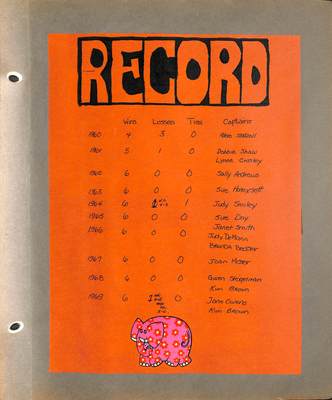 RECORD
Wins Losses Ties Captains
1960 4 3 0
1961 5 1 0 Debbie Shaw
Lynne
1962 6 0 0 Sally Andrews
1963 6 0 0 Sue Honeysett
1964 6 1 Judy Smiley
1965 6 0 0 Sue Day
1966 6 0 0 Janet Smith
Judy
Brenda
1967 6 0 0 Joan Moser
1968 6 0 0 Gwen
Kim Brown
1969 6 1 0 Jane Owens
Kim Brown